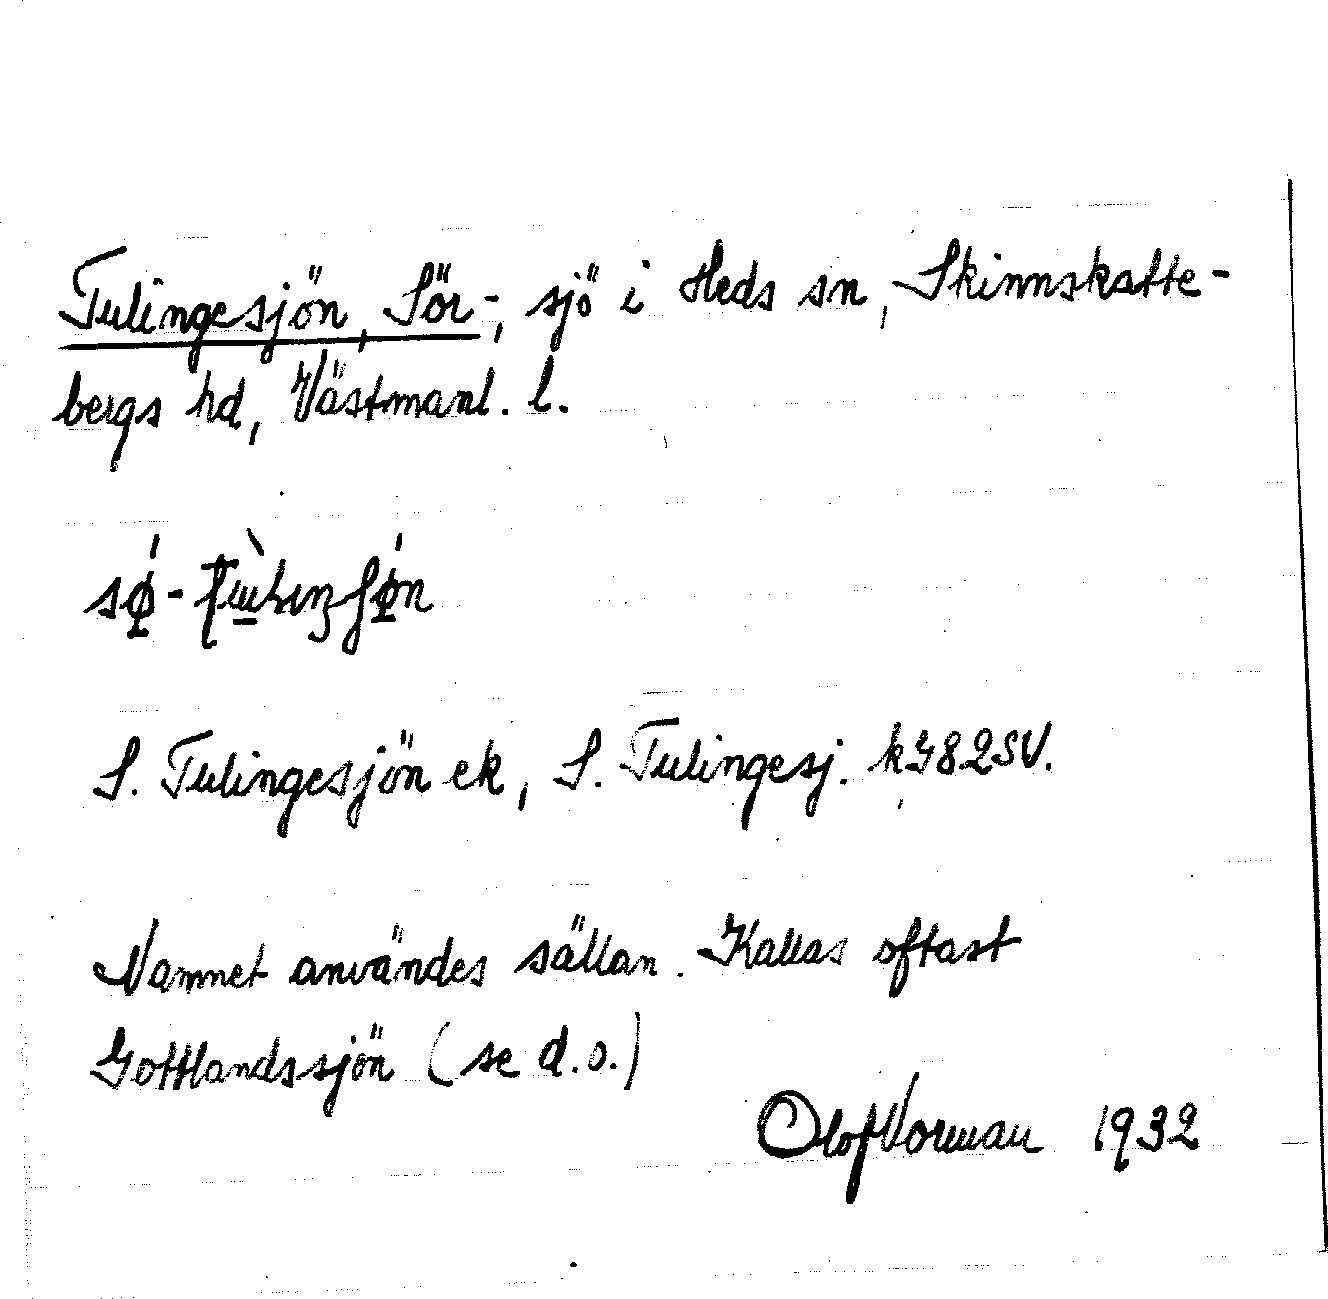 Tulingesjön, Sör-, sjö i Heds sn, Skinnskatte-
bergs hd, Västmanl. l.
S. Tulingesjön ek, S. Tulingesj. k, G82SV.
Namnet användes sällan. Kallas oftast
Gottlandssjön (se d.o.)
Olof Norman 1932